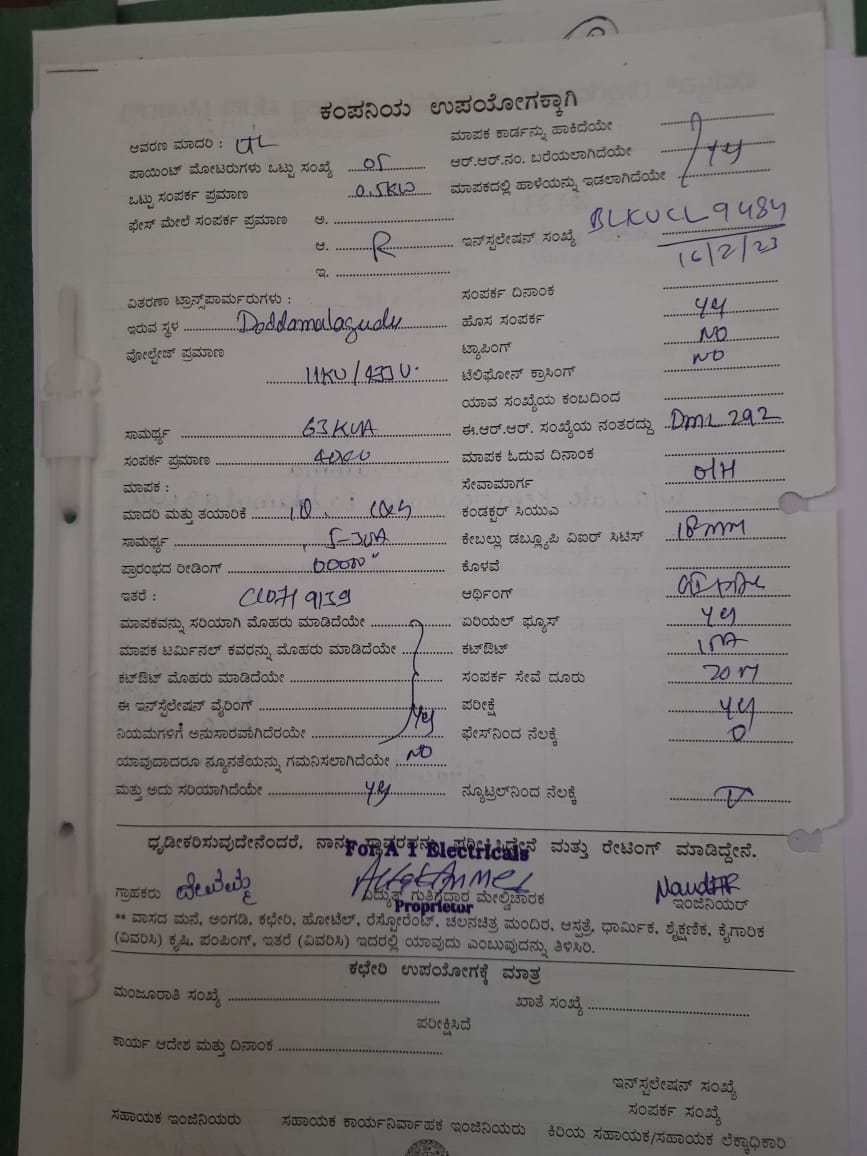 ಕಂಪನಿಯ ಉಪಯೋಗಕ್ಕಾಗಿ
ಆವರಣ ಮಾದರಿ : ಮಾಪಕ ಕಾರ್ಡನ್ನು ಹಾಕಿದೆಯೇ
ಪಾಯಿಂಟ್ ಮೋಟರುಗಳು ಒಟ್ಟು ಸಂಖ್ಯೆ 05 ಆರ್.ಆರ್.ನಂ. ಬರೆಯಲಾಗಿದೆಯೇ
ಒಟ್ಟು ಸಂಪರ್ಕ ಪ್ರಮಾಣ 0.5KW ಮಾಪಕದಲ್ಲಿ ಹಾಳೆಯನ್ನು ಇಡಲಾಗಿದೆಯೇ
ಫೇಸ್ ಮೇಲೆ ಸಂಪರ್ಕ ಪ್ರಮಾಣ ಅ.
ಆ. R ಇನ್‌ಸ್ಪಲೇಷನ್ ಸಂಖ್ಯೆ BLKUCL9484
16/2/23
ಇ.
ವಿತರಣಾ ಟ್ರಾನ್ಸ್‌ಪಾರ್ಮರುಗಳು : ಸಂಪರ್ಕ ದಿನಾಂಕ
ಇರುವ ಸ್ಥಳ Doddamalagudu ಹೊಸ ಸಂಪರ್ಕ yes
ವೋಲ್ಟೇಜ್ ಪ್ರಮಾಣ ಟ್ಯಾಪಿಂಗ್ NO
11KV/433V. ಟೆಲಿಫೋನ್ ಕ್ರಾಸಿಂಗ್ NO
ಯಾವ ಸಂಖ್ಯೆಯ ಕಂಬದಿಂದ
ಸಾಮರ್ಥ್ಯ 63KVA ಈ.ಆರ್.ಆರ್. ಸಂಖ್ಯೆಯ ನಂತರದ್ದು DML292
ಸಂಪರ್ಕ ಪ್ರಮಾಣ ಮಾಪಕ ಓದುವ ದಿನಾಂಕ
ಮಾಪಕ : ಸೇವಾಮಾರ್ಗ O/H
ಮಾದರಿ ಮತ್ತು ತಯಾರಿಕೆ ಕಂಡಕ್ಟರ್ ಸಿಯುಎ
ಸಾಮರ್ಥ್ಯ ಕೇಬಲ್ಲು ಡಬ್ಲ್ಯೂಪಿ ವಿಐರ್ ಸಿಟಿಸ್
ಪ್ರಾರಂಭದ ರೀಡಿಂಗ್ ಕೊಳವೆ
ಇತರೆ : ಆರ್ಥಿಂಗ್
ಮಾಪಕವನ್ನು ಸರಿಯಾಗಿ ಮೊಹರು ಮಾಡಿದೆಯೇ ಏರಿಯಲ್ ಫ್ಯೂಸ್ yes
ಮಾಪಕ ಟರ್ಮಿನಲ್ ಕವರನ್ನು ಮೊಹರು ಮಾಡಿದೆಯೇ ಕಟ್‌ಔಟ್
ಕಟ್‌ಔಟ್ ಮೊಹರು ಮಾಡಿದೆಯೇ ಸಂಪರ್ಕ ಸೇವೆ ದೂರು 20M
ಈ ಇನ್‌ಸ್ಟಲೇಷನ್ ವೈರಿಂಗ್ ಪರೀಕ್ಷೆ yes
ನಿಯಮಗಳಿಗೆ ಅನುಸಾರವಾಗಿದೆರಯೇ yes ಫೇಸ್‌ನಿಂದ ನೆಲಕ್ಕೆ
ಯಾವುದಾದರೂ ನ್ಯೂನತೆಯನ್ನು ಗಮನಿಸಲಾಗಿದೆಯೇ NO
ಮತ್ತು ಅದು ಸರಿಯಾಗಿದೆಯೇ yes ನ್ಯೂಟ್ರಲ್‌ನಿಂದ ನೆಲಕ್ಕೆ
ಧೃಡೀಕರಿಸುವುದೇನೆಂದರೆ, ನಾನು ಮತ್ತು ರೇಟಿಂಗ್ ಮಾಡಿದ್ದೇನೆ.
For A 1 Electricals
ಗ್ರಾಹಕರು ವಿದ್ಯುತ್ ಗುತಿಗೆದಾರ ಮೇಲ್ವಿಚಾರಕ ಇಂಜಿನಿಯರ್
Proprietor
** ವಾಸದ ಮನೆ, ಅಂಗಡಿ, ಕಛೇರಿ, ಹೋಟೆಲ್, ರೆಸ್ಟೋರೆಂಟ್, ಚಲನಚಿತ್ರ ಮಂದಿರ, ಆಸ್ಪತ್ರೆ, ಧಾರ್ಮಿಕ, ಶೈಕ್ಷಣಿಕ, ಕೈಗಾರಿಕ
(ವಿವರಿಸಿ) ಕೃಷಿ, ಪಂಪಿಂಗ್, ಇತರೆ (ವಿವರಿಸಿ) ಇದರಲ್ಲಿ ಯಾವುದು ಎಂಬುವುದನ್ನು ತಿಳಿಸಿರಿ.
ಕಛೇರಿ ಉಪಯೋಗಕ್ಕೆ ಮಾತ್ರ
ಮಂಜೂರಾತಿ ಸಂಖ್ಯೆ ಖಾತೆ ಸಂಖ್ಯೆ
ಪರೀಕ್ಷಿಸಿದೆ
ಕಾರ್ಯ ಆದೇಶ ಮತ್ತು ದಿನಾಂಕ
ಇನ್‌ಸ್ಟಲೇಷನ್ ಸಂಖ್ಯೆ
ಸಂಪರ್ಕ ಸಂಖ್ಯೆ
ಸಹಾಯಕ ಇಂಜಿನಿಯರು ಸಹಾಯಕ ಕಾರ್ಯನಿರ್ವಾಹಕ ಇಂಜಿನಿಯರು ಕಿರಿಯ ಸಹಾಯಕ/ಸಹಾಯಕ ಲೆಕ್ಕಾಧಿಕಾರಿ